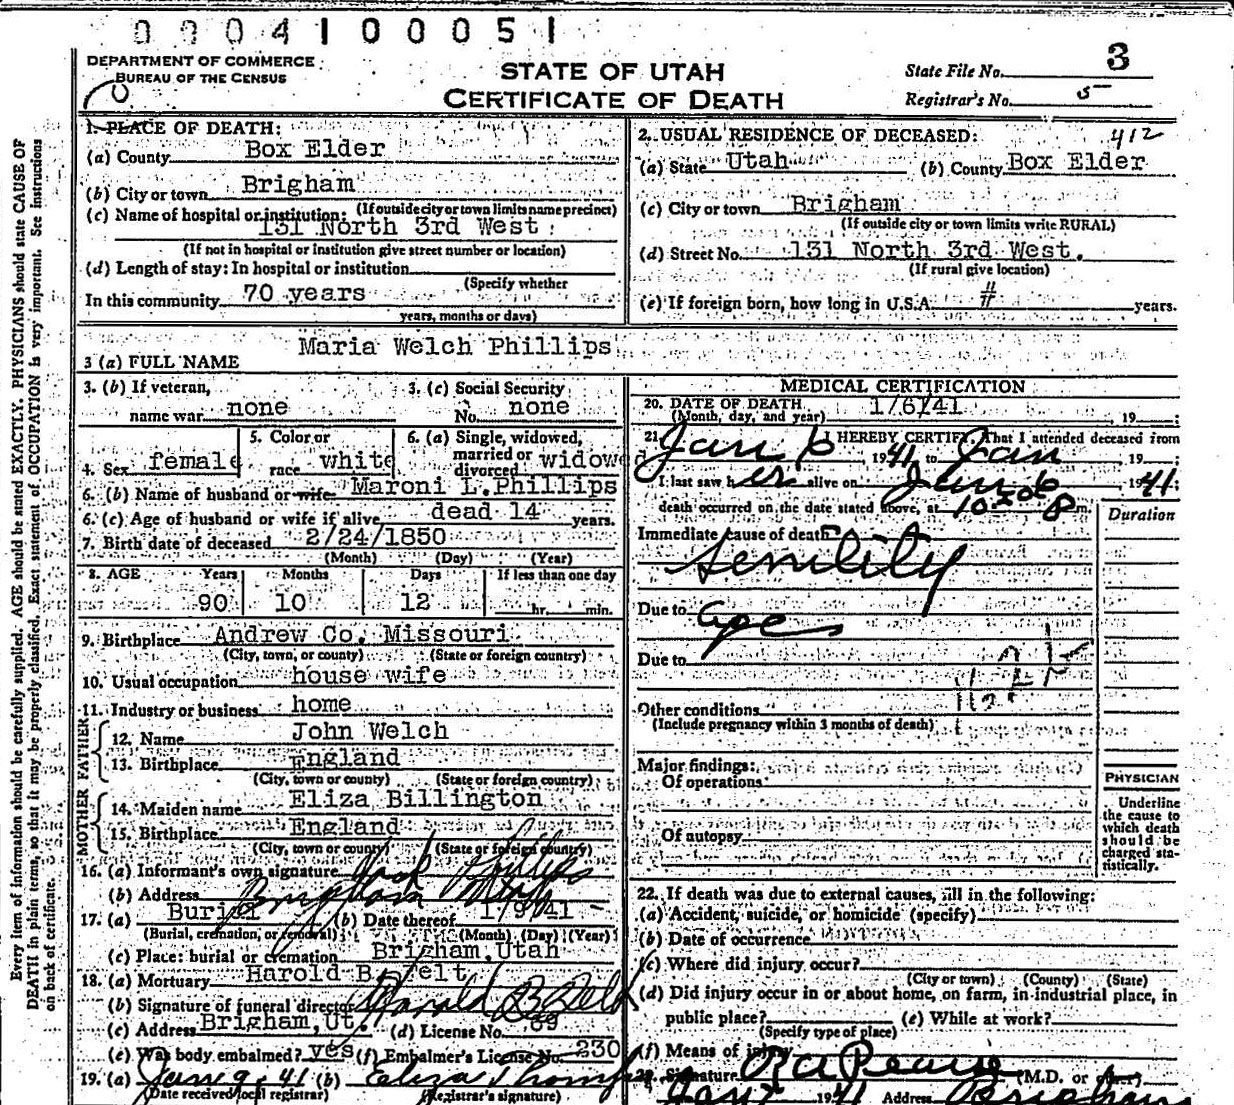 0004100051
DEPARTMENT OF COMMERCE
BUREAU OF THE CENSUS
STATE OF UTAH
CERTIFICATE OF DEATH
State File No. 3
Registrar's No. 5
1. PLACE OF DEATH:
(a) County Box Elder
(b) City or town Brigham
(If outside city or town limits name precinct)
(c) Name of hospital or institution:
131 North 3rd West
(If not in hospital or institution give street number or location)
(d) Length of stay: In hospital or institution
(Specify whether
In this community 70 years
years, months or days)
2. USUAL RESIDENCE OF DECEASED: 412
(a) State Utah (b) County Box Elder
(c) City or town Brigham
(If outside city or town limits write RURAL)
(d) Street No. 131 North 3rd West.
(If rural give location)
(e) If foreign born, how long in U.S.A. # years.
3 (a) FULL NAME Maria Welch Phillips
3. (b) If veteran,
name war none
3. (c) Social Security
No. none
4. Sex female
5. Color or
race white
6. (a) Single, widowed,
married or
divorced widowed
6. (b) Name of husband or wife Maroni L. Phillips
6. (c) Age of husband or wife if alive dead 14 years.
7. Birth date of deceased 2/24/1850
(Month) (Day) (Year)
8. AGE Years Months Days If less than one day
90 10 12 hr. min.
9. Birthplace Andrew Co. Missouri
(City, town, or county) (State or foreign country)
10. Usual occupation house wife
11. Industry or business home
FATHER
12. Name John Welch
13. Birthplace England
(City, town or county) (State or foreign country)
MOTHER
14. Maiden name Eliza Billington
15. Birthplace England
(City, town or county) (State or foreign country)
16. (a) Informant's own signature Phillips
(b) Address Brigham Utah
17. (a) Burial (b) Date thereof 1/9/41
(Burial, cremation, or removal) (Month) (Day) (Year)
(c) Place: burial or cremation Brigham, Utah
18. (a) Mortuary Harold B. Felt
(b) Signature of funeral director Harold B Felt
(c) Address Brigham, Ut. (d) License No. 69
(e) Was body embalmed? yes (f) Embalmer's License No. 230
19. (a) Jan 9-41 (b) Eliza
(Date received local registrar) (Registrar's signature)
MEDICAL CERTIFICATION
20. DATE OF DEATH 1/6/41
(Month, day, and year) , 19 ;
21. I HEREBY CERTIFY, That I attended deceased from
Jan 6 , 1941 to Jan 19 ;
I last saw her alive on Jan 6 , 1941;
death occurred on the date stated above, at 10 P m.
Duration
Immediate cause of death
Senility
Due to Age
Due to
Other conditions
(Include pregnancy within 3 months of death)
Major findings:
Of operations
Of autopsy
PHYSICIAN
Underline
the cause to
which death
should be
charged sta-
tistically.
22. If death was due to external causes, fill in the following:
(a) Accident, suicide, or homicide (specify)
(b) Date of occurrence
(c) Where did injury occur?
(City or town) (County) (State)
(d) Did injury occur in or about home, on farm, in industrial place, in
public place? (e) While at work?
(Specify type of place)
(f) Means of injury
Signature R A Pearse (M.D. or other)
1941 Address Brigham
Every item of information should be carefully supplied. AGE should be stated EXACTLY. PHYSICIANS should state CAUSE OF
DEATH in plain terms, so that it may be properly classified. Exact statement of OCCUPATION is very important. See instructions
on back of certificate.